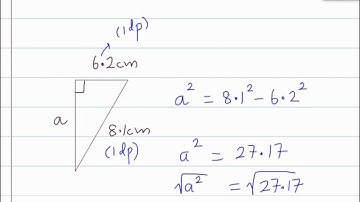 (1dp)
6·2cm
a
8·1cm
(1dp)
a² = 8·1² − 6·2²
a² = 27·17
√a² = √27·17